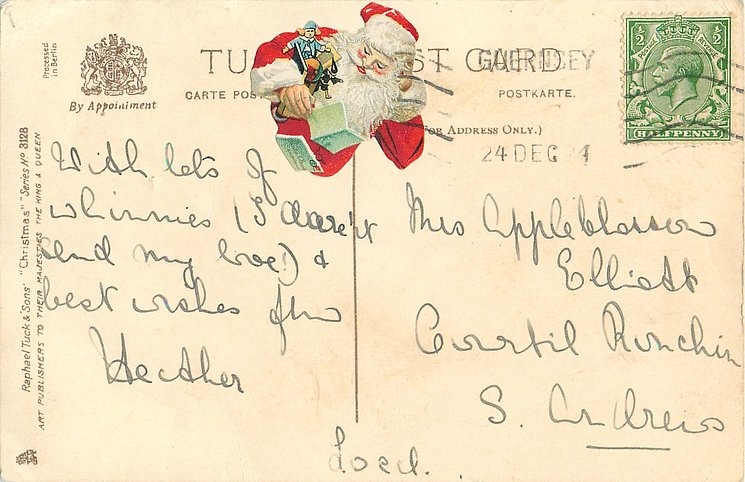 Processed
in Berlin
By Appointment
TU ST CARD
GUERNSEY
CARTE POS
POSTKARTE.
FOR ADDRESS ONLY.)
24 DEC
½ ½
HALFPENNY
Raphael Tuck & Sons' "Christmas" Series No 3128
ART PUBLISHERS TO THEIR MAJESTIES THE KING & QUEEN
With lots of
whinnies (I daren't
send my love!) &
best wishes from
Heather
Mrs Appleblossom
Elliott
Courtil Ronchin
S. Andrews
Local.